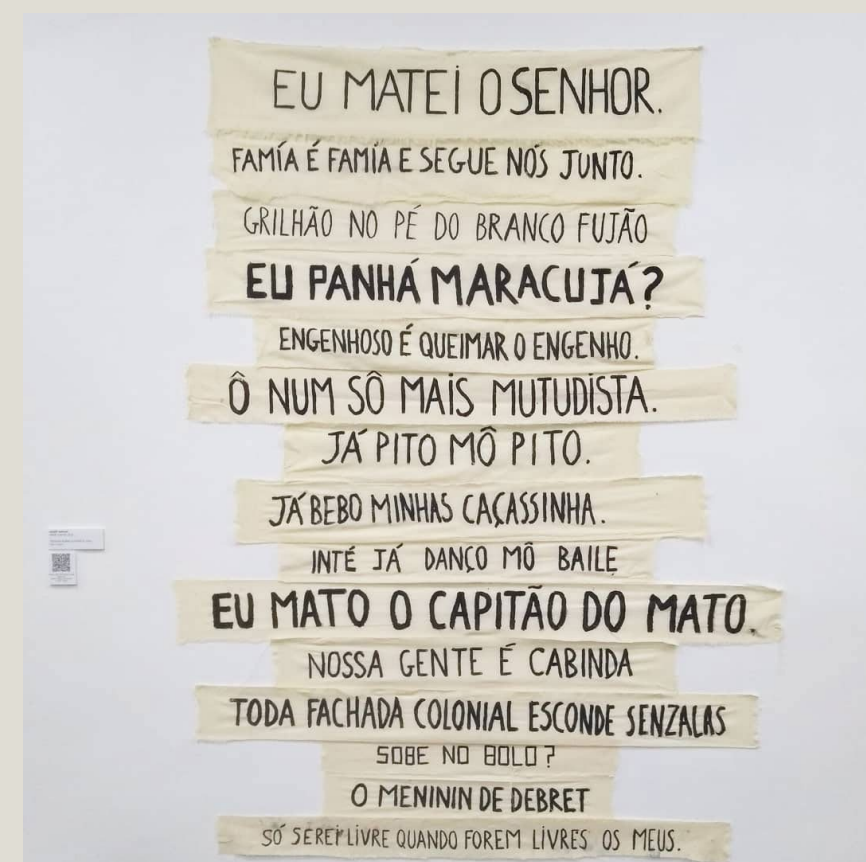 EU MATEI O SENHOR.
FAMÍA É FAMIA E SEGUE NÓS JUNTO.
GRILHÃO NO PÉ DO BRANCO FUJÃO
EU PANHÁ MARACUJÁ?
ENGENHOSO É QUEIMAR O ENGENHO.
Ô NUM SÔ MAIS MUTUDISTA.
JÁ PITO MÔ PITO.
JÁ BEBO MINHAS CAÇASSINHA.
INTÉ JÁ DANÇO MÔ BAILE
EU MATO O CAPITÃO DO MATO.
NOSSA GENTE É CABINDA
TODA FACHADA COLONIAL ESCONDE SENZALAS
SOBE NO BOLO?
O MENININ DE DEBRET
SÓ SEREI LIVRE QUANDO FOREM LIVRES OS MEUS.